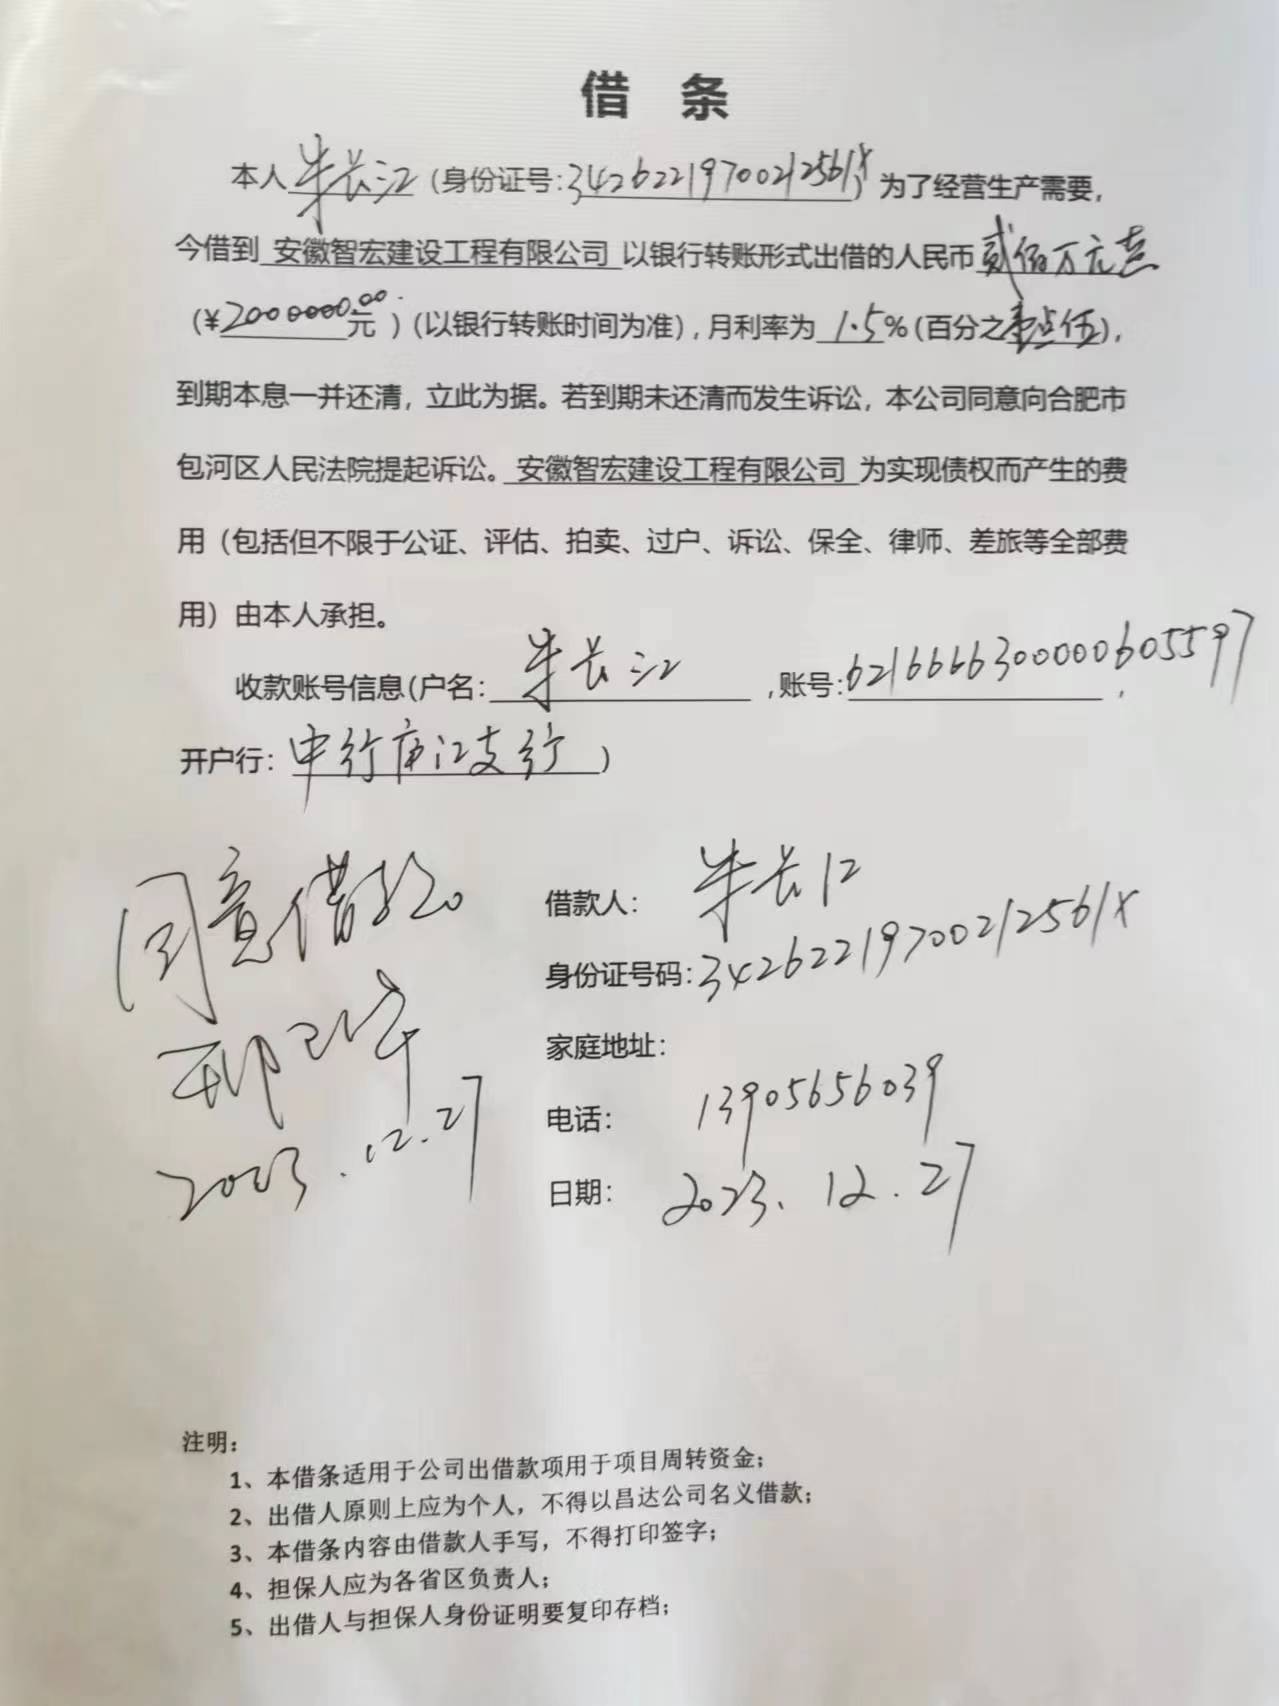 借 条
本人朱长江(身份证号:34262219700212561X)为了经营生产需要,
今借到 安徽智宏建设工程有限公司 以银行转账形式出借的人民币贰佰万元整
(¥2000000.00元)(以银行转账时间为准),月利率为 1.5%(百分之壹点伍),
到期本息一并还清,立此为据。若到期未还清而发生诉讼,本公司同意向合肥市
包河区人民法院提起诉讼。安徽智宏建设工程有限公司 为实现债权而产生的费
用(包括但不限于公证、评估、拍卖、过户、诉讼、保全、律师、差旅等全部费
用)由本人承担。
收款账号信息(户名: 朱长江 ,账号:6216666300000605597,
开户行:中行庐江支行)
借款人: 朱长江
身份证号码:34262219700212561X
家庭地址:
电话: 13905656039
日期: 2023.12.27
同意借款
2023.12.27
注明:
1、本借条适用于公司出借款项用于项目周转资金;
2、出借人原则上应为个人,不得以昌达公司名义借款;
3、本借条内容由借款人手写,不得打印签字;
4、担保人应为各省区负责人;
5、出借人与担保人身份证明要复印存档;